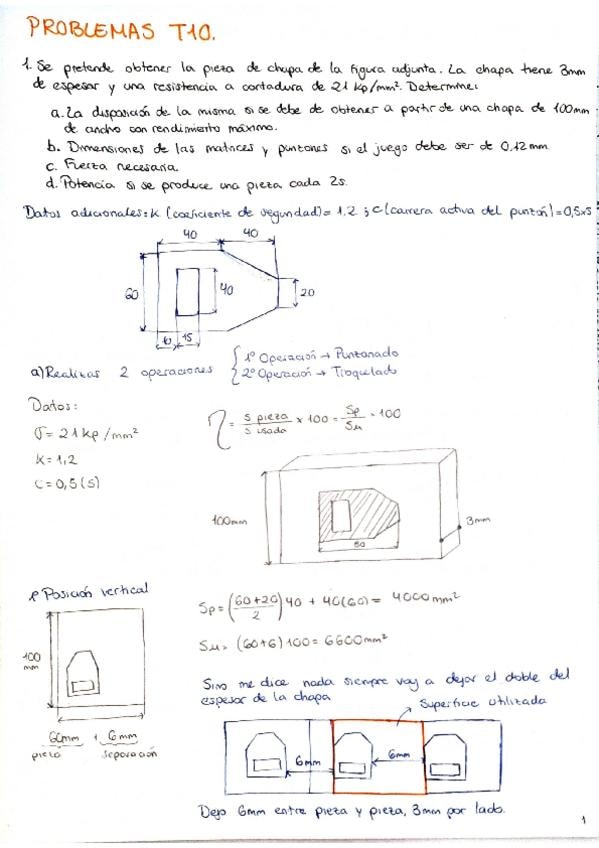 PROBLEMAS T10.
1. Se pretende obtener la pieza de chapa de la figura adjunta. La chapa tiene 3mm
de espesor y una resistencia a cortadura de 21 kp/mm². Determine:
a. La disposición de la misma si se debe de obtener a partir de una chapa de 100mm
de ancho con rendimiento máximo.
b. Dimensiones de las matrices y punzones si el juego debe ser de 0.12mm
c. Fuerza necesaria.
d. Potencia si se produce una pieza cada 2s.
Datos adicionales: K (coeficiente de seguridad) = 1,2 ; C (carrera activa del punzón) = 0,5xs
40 40
60 40 20
10 15
a) Realizas 2 operaciones
1ª Operación → Punzonado
2ª Operación → Troquelado
Datos:
σ = 21 kp/mm²
K = 1,2
C = 0,5 (s)
η = S pieza / S usada x 100 = Sp / Su · 100
100mm
3mm
80
Posición vertical
100
mm
60mm + 6mm
pieza separación
Sp = ((60+20)/2) 40 + 40(60) = 4000 mm²
Su = (60+6) 100 = 6600mm²
Si no me dice nada siempre voy a dejar el doble del
espesor de la chapa
Superficie utilizada
6mm 6mm
Dejo 6mm entre pieza y pieza, 3mm por lado.
1